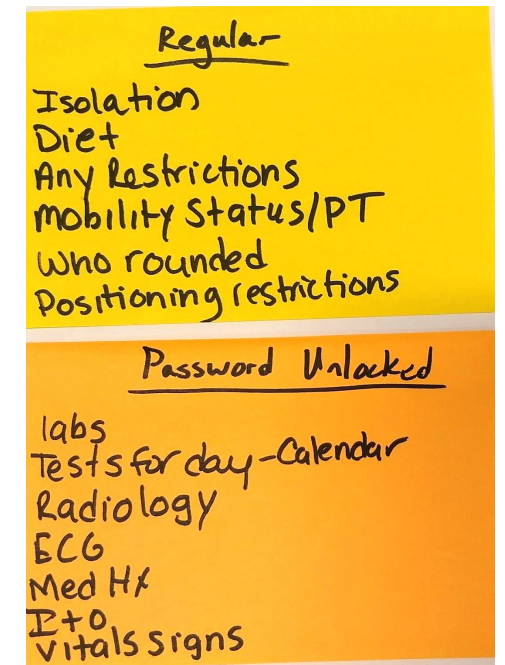 Regular
Isolation
Diet
Any Restrictions
Mobility Status/PT
Who rounded
Positioning restrictions
Password Unlocked
labs
Tests for day - Calendar
Radiology
ECG
Med Hx
I+O
Vitals signs